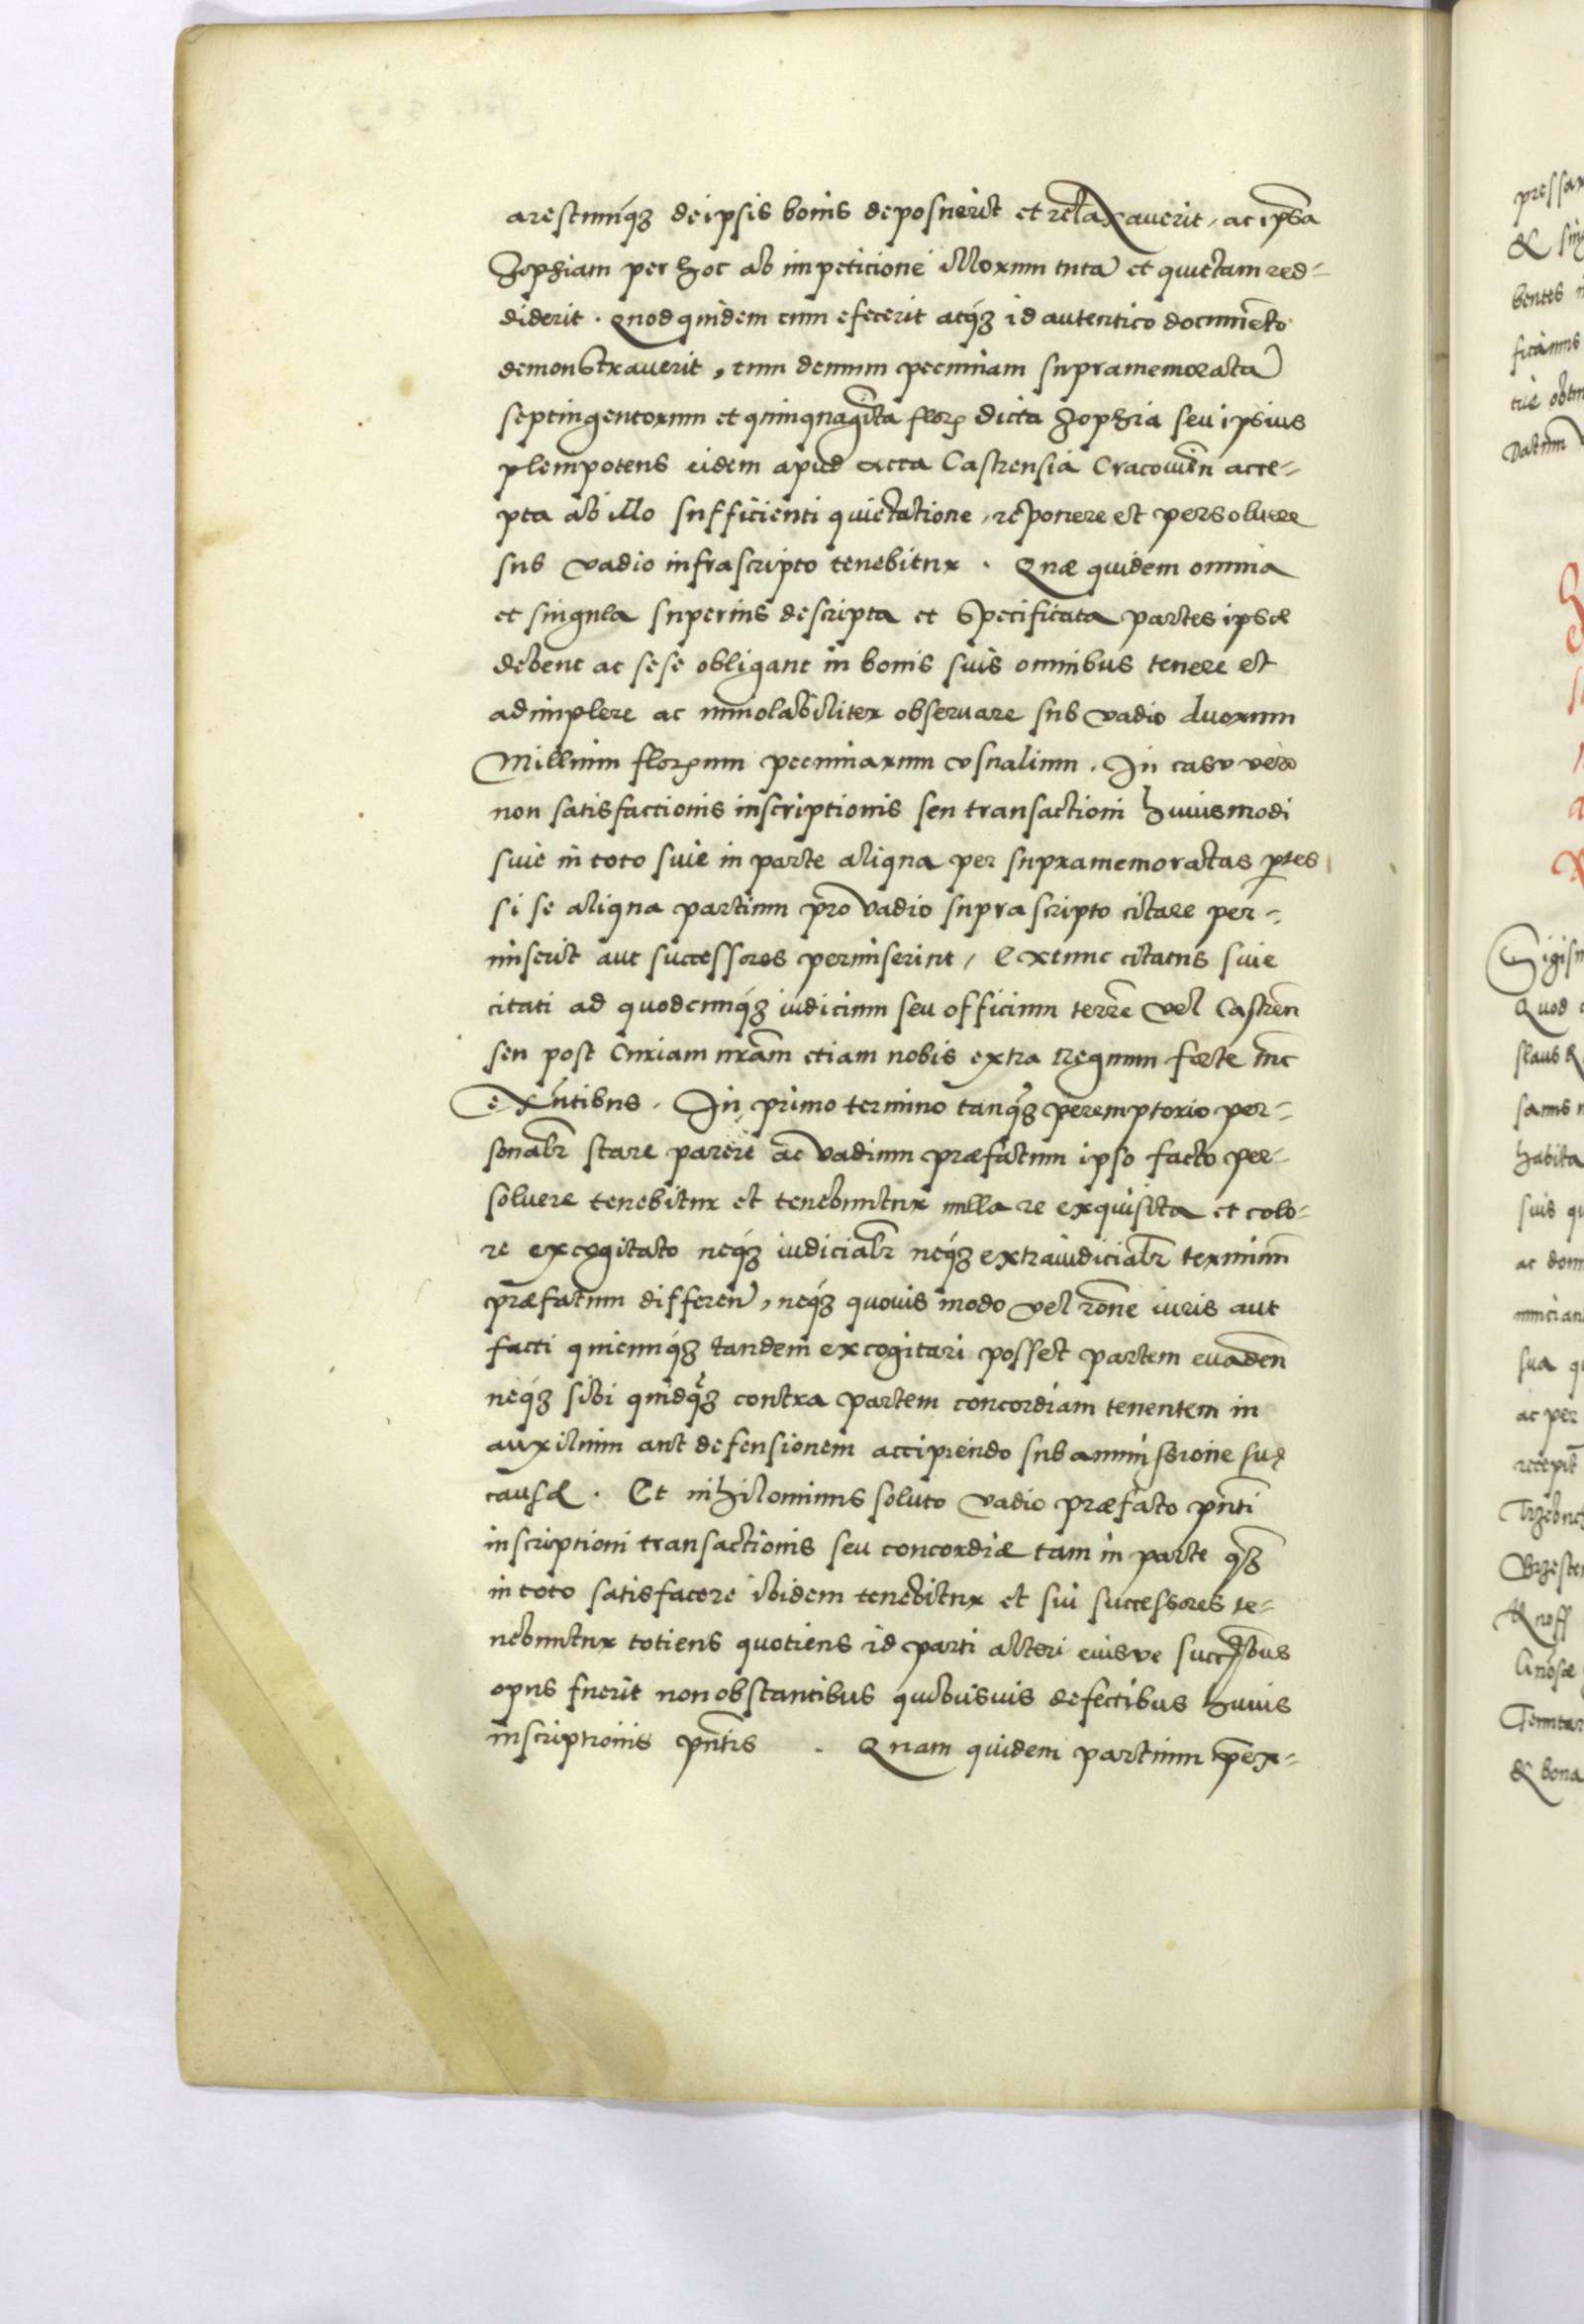 arestumq́ꝫ de ipsis bonis deposuerit et relaxauerit, ac ip̃sa
Zophiam per hoc ab impeticione illorum tutã et quietam red-
diderit. Quod quidem cum efecerit atq́ꝫ id autentico documẽto
demonstrauerit, tum demum pecuniam supramemoratã
septingentorum et quinquagĩta floꝝ dicta Zophia seu ipsius
plempotens eidem apud acta Castrensia Cracouieñ acce-
pta ab illo sufficienti quietatione, reponere et persoluere
sub vadio infrascripto tenebitur. Quæ quidem omnia
et singula superius descripta et specificata partes ipsæ
debent ac sese obligant in bonis suis omnibus tenere et
adimplere ac inuiolabiliter obseruare sub vadio duorum
Millium floꝝnum pecuniarum vsualium. In casu vero
non satisfactionis inscriptionis seu transactioni huiusmodi
siue in toto siue in parte aliqua per supramemoratas ptẽs
si se aliqua partium pro vadio suprascripto citare per-
miserit aut successores permiserint, Extunc citatus siue
citati ad quodcunq́ꝫ iudicium seu officium terrẽ vel Castreñ
seu post Curiam nrãm etiam nobis extra regnum forte tũc
exñtibus. In primo termino tanq̃ꝫ peremptorio per-
sonalr̃ stare parere ac vadium præfatum ipso facto per-
soluere tenebitur et tenebuntur nulla re exquisita et colo-
re excogitato neq́ꝫ iudicialr̃ neq́ꝫ extraiudicialr̃ terminũ
præfatum differeñ, neq́ꝫ quouis modo vel rõne iuris aut
facti quicunq́ꝫ tandem excogitari posset partem euadeñ
neq́ꝫ sibi quidq̃ꝫ contra partem concordiam tenentem in
auxilium aut defensionem accipiendo sub amissione suę
causæ. Et nihilominus soluto vadio præfato pñti
inscriptioni transactionis seu concordiæ tam in parte q̃ꝫ
in toto satisfacere ibidem tenebitur et sui successores te-
nebuntur totiens quotiens id parti alteri eiusve succ̃sbus
opus fuerit non obstantibus quibusuis defectibus huius
inscriptionis pñtis. Quam quidem partium p̃ex-